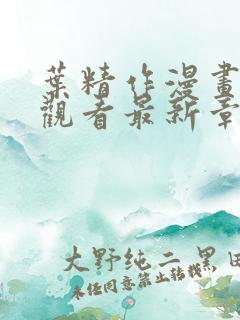 葉精作漫畫
觀看最新章
大野纯二 黑田
未经同意禁止转载